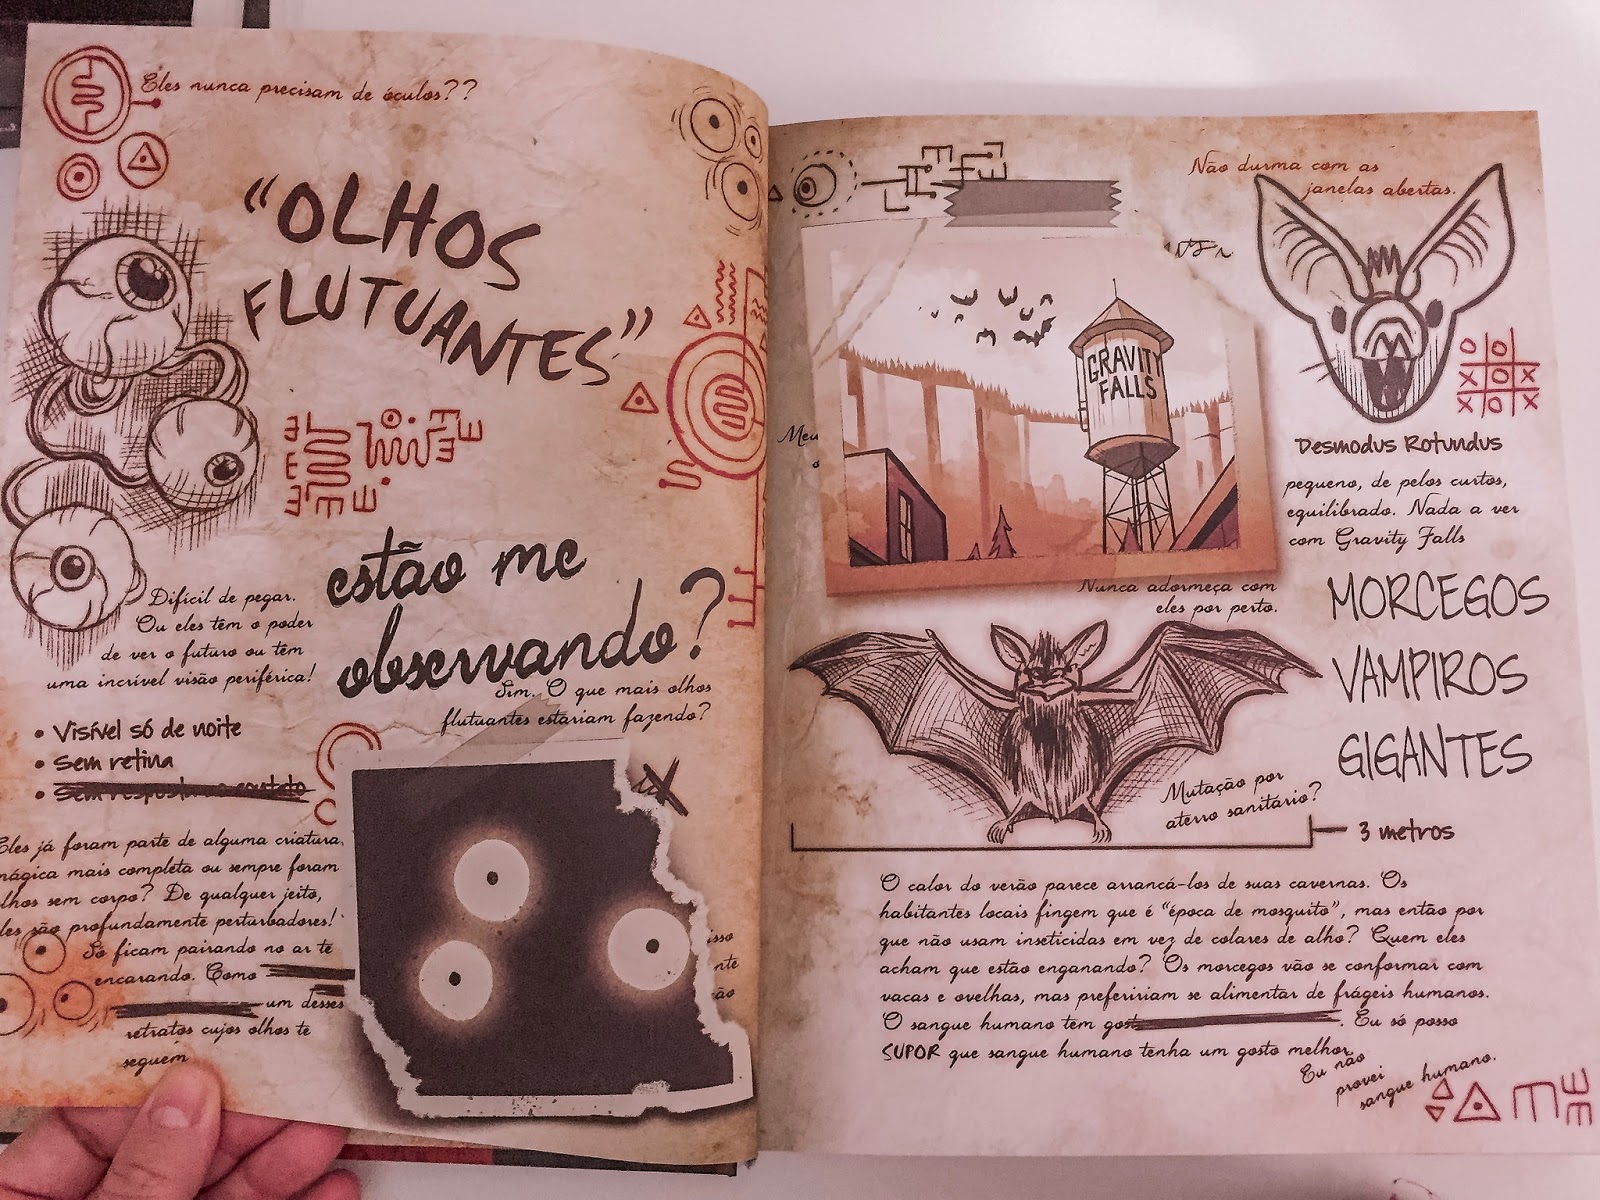 Eles nunca precisam de óculos??
"OLHOS
FLUTUANTES"
estão me
observando?
Difícil de pegar.
Ou eles têm o poder
de ver o futuro ou têm
uma incrível visão periférica!
Sim. O que mais olhos
flutuantes estariam fazendo?
• Visível só de noite
• Sem retina
• Sem resposta ao contato
Eles já foram parte de alguma criatura
mágica mais completa ou sempre foram
olhos sem corpo? De qualquer jeito,
eles são profundamente perturbadores!
Só ficam pairando no ar te
encarando. Como
um desses
retratos cujos olhos te
seguem
Não durma com as
janelas abertas.
GRAVITY
FALLS
Meu
O O
X O X
X O X
Desmodus Rotundus
pequeno, de pelos curtos,
equilibrado. Nada a ver
com Gravity Falls
Nunca adormeça com
eles por perto.
MORCEGOS
VAMPIROS
GIGANTES
Mutação por
aterro sanitário?
3 metros
O calor do verão parece arrancá-los de suas cavernas. Os
habitantes locais fingem que é "época de mosquito", mas então por
que não usam inseticidas em vez de colares de alho? Quem eles
acham que estão enganando? Os morcegos vão se conformar com
vacas e ovelhas, mas prefeririam se alimentar de frágeis humanos.
O sangue humano tem gost . Eu só posso
SUPOR que sangue humano tenha um gosto melhor.
Eu não
provei
sangue humano.